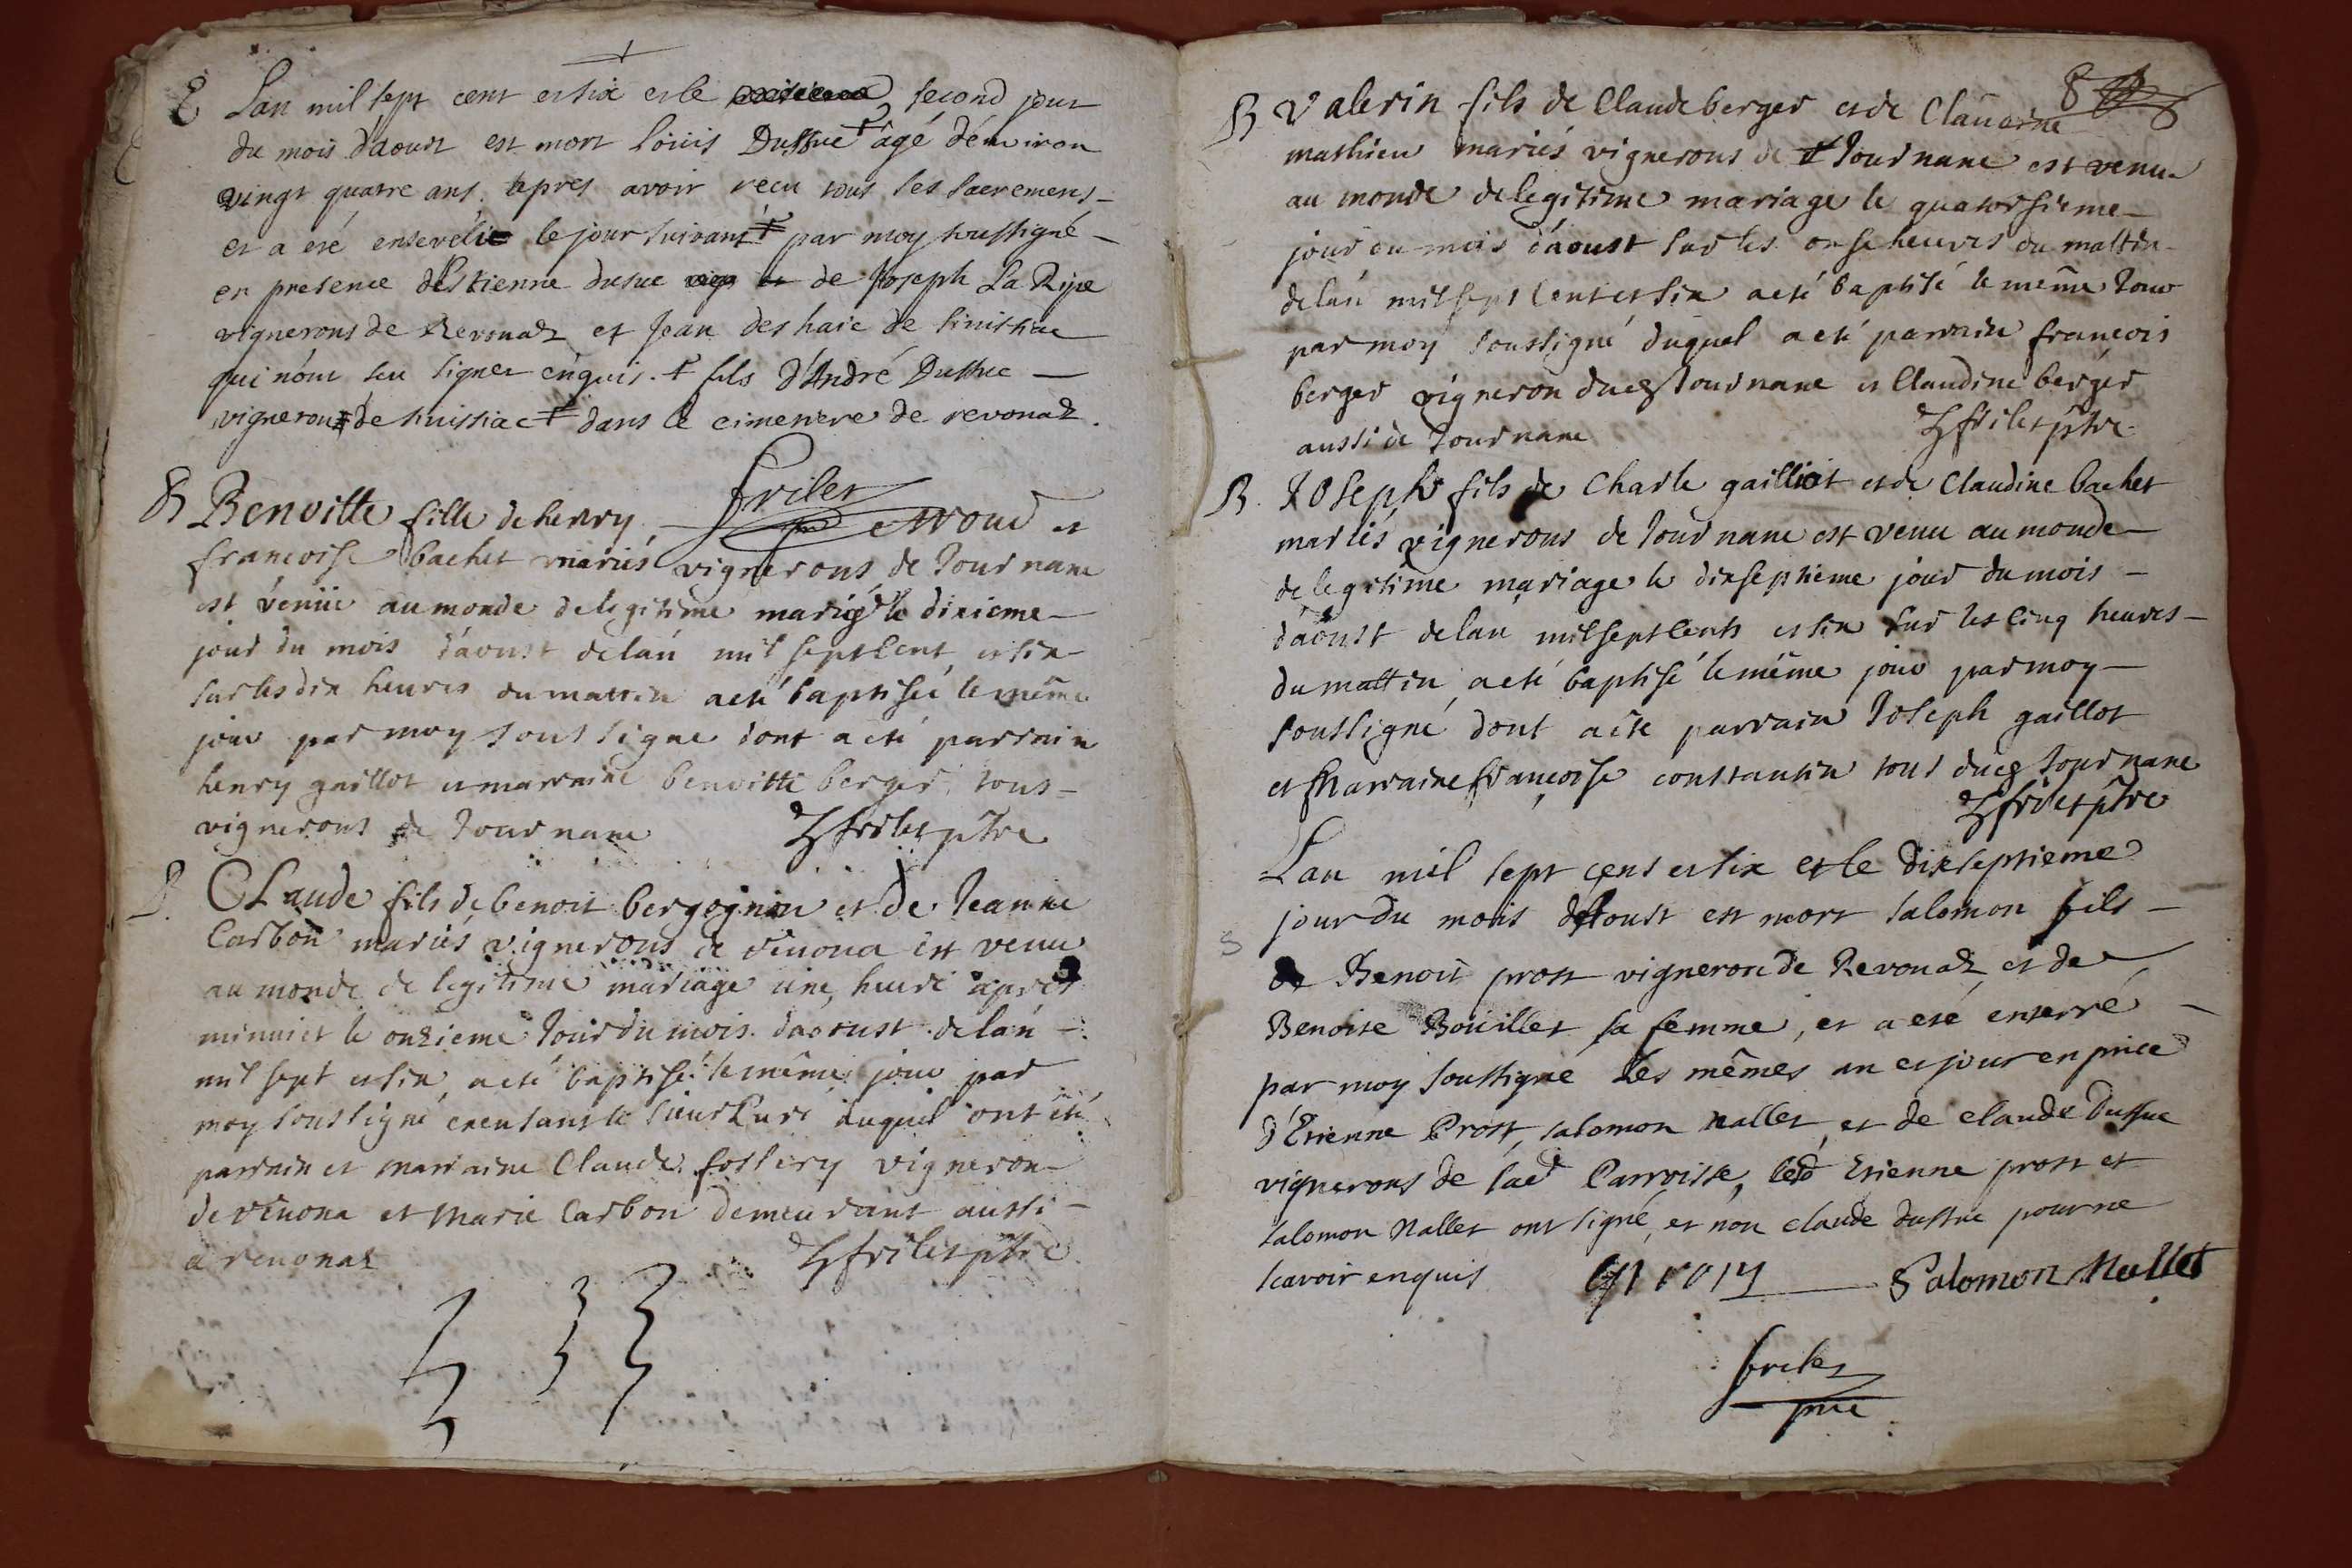 E Lan mil sept cent et six et le second jour
du mois d'aoust est mort Loüis Dussuc + agé d'environ
vingt quatre ans. apres avoir recu tous ses sacremens
et a eté enseveli le jour suivant + par moy soussigné
en presence d'Estienne dusuc de Joseph La Ripe
vignerons de Revonaz et Jean des haie de
qui n'ont seu signer enquis. + fils d'André Dussuc
vigneron de + dans le cimetiere de revonaz.
Frilet
B Benoitte fille de henry et
francoise bachet mariés vignerons de Tournane
est venüe au monde de legitime mariage le dixieme
jour du mois d'aoust de lan mil sept cent et six
sur les dix heures du mattin a eté baptisée le même
jour par moy soussigne dont a eté parrain
henry gaillot et marraine benoitte berger, tous
vignerons de Tournane frilet ptre
B. CLaude fils de benoit bergognion et de Jeanne
Carbon mariés vignerons de revona est venu
au monde de legitime mariage une heure apres
minuict le onzieme Jour du mois d'aoust de lan
mil sept et six a eté baptisé le même jour par
moy soussigné en lans le sieur Curé duquel ont été
parrain et marraine Claude vigneron
de revona et marie Carbon demeurant aussi
a revonaz frilet ptre
8
B Valerin fils de Claude berger et de Claudine
mathieu mariés vignerons de Tournane est venu
au monde de legitime mariage le quatorsieme
jour du mois d'aoust sur les onse heures du mattin
de lan mil sept cent et six a eté baptisé le même Jour
par moy soussigné duquel a eté parrain francois
berger vigneron dud Tournane et Claudine berger
aussi de Tournane frilet ptre
B. Joseph fils de Charle gailliot et de Claudine bachet
mariés vignerons de Tournane est venu au monde
de legitime mariage le dixseptieme jour du mois
d'aoust de lan mil sept cents et six sur les cinq heures
du mattin a eté baptisé le même jour par moy
soussigné dont a eté parrain Joseph gaillot
et Marraine françoise constantin tous dud Tournane
frilet ptre
Lan mil sept cent et six et le dixseptieme
jour du mois d'Aoust est mort salomon fils
de Benoit prost vigneron de Revonaz, et de
Benoite Boüillet sa femme, et a eté enterré
par moy soussigné Les mêmes an et jour en pnce
d'Etienne Prost, salomon nallet, et de claude Dussuc
vignerons de lad Parroisse, led Etienne prost et
salomon Nallet ont signé, et non claude dussuc pour ne
scavoir enquis Salomon Nallet
frilet
ptre